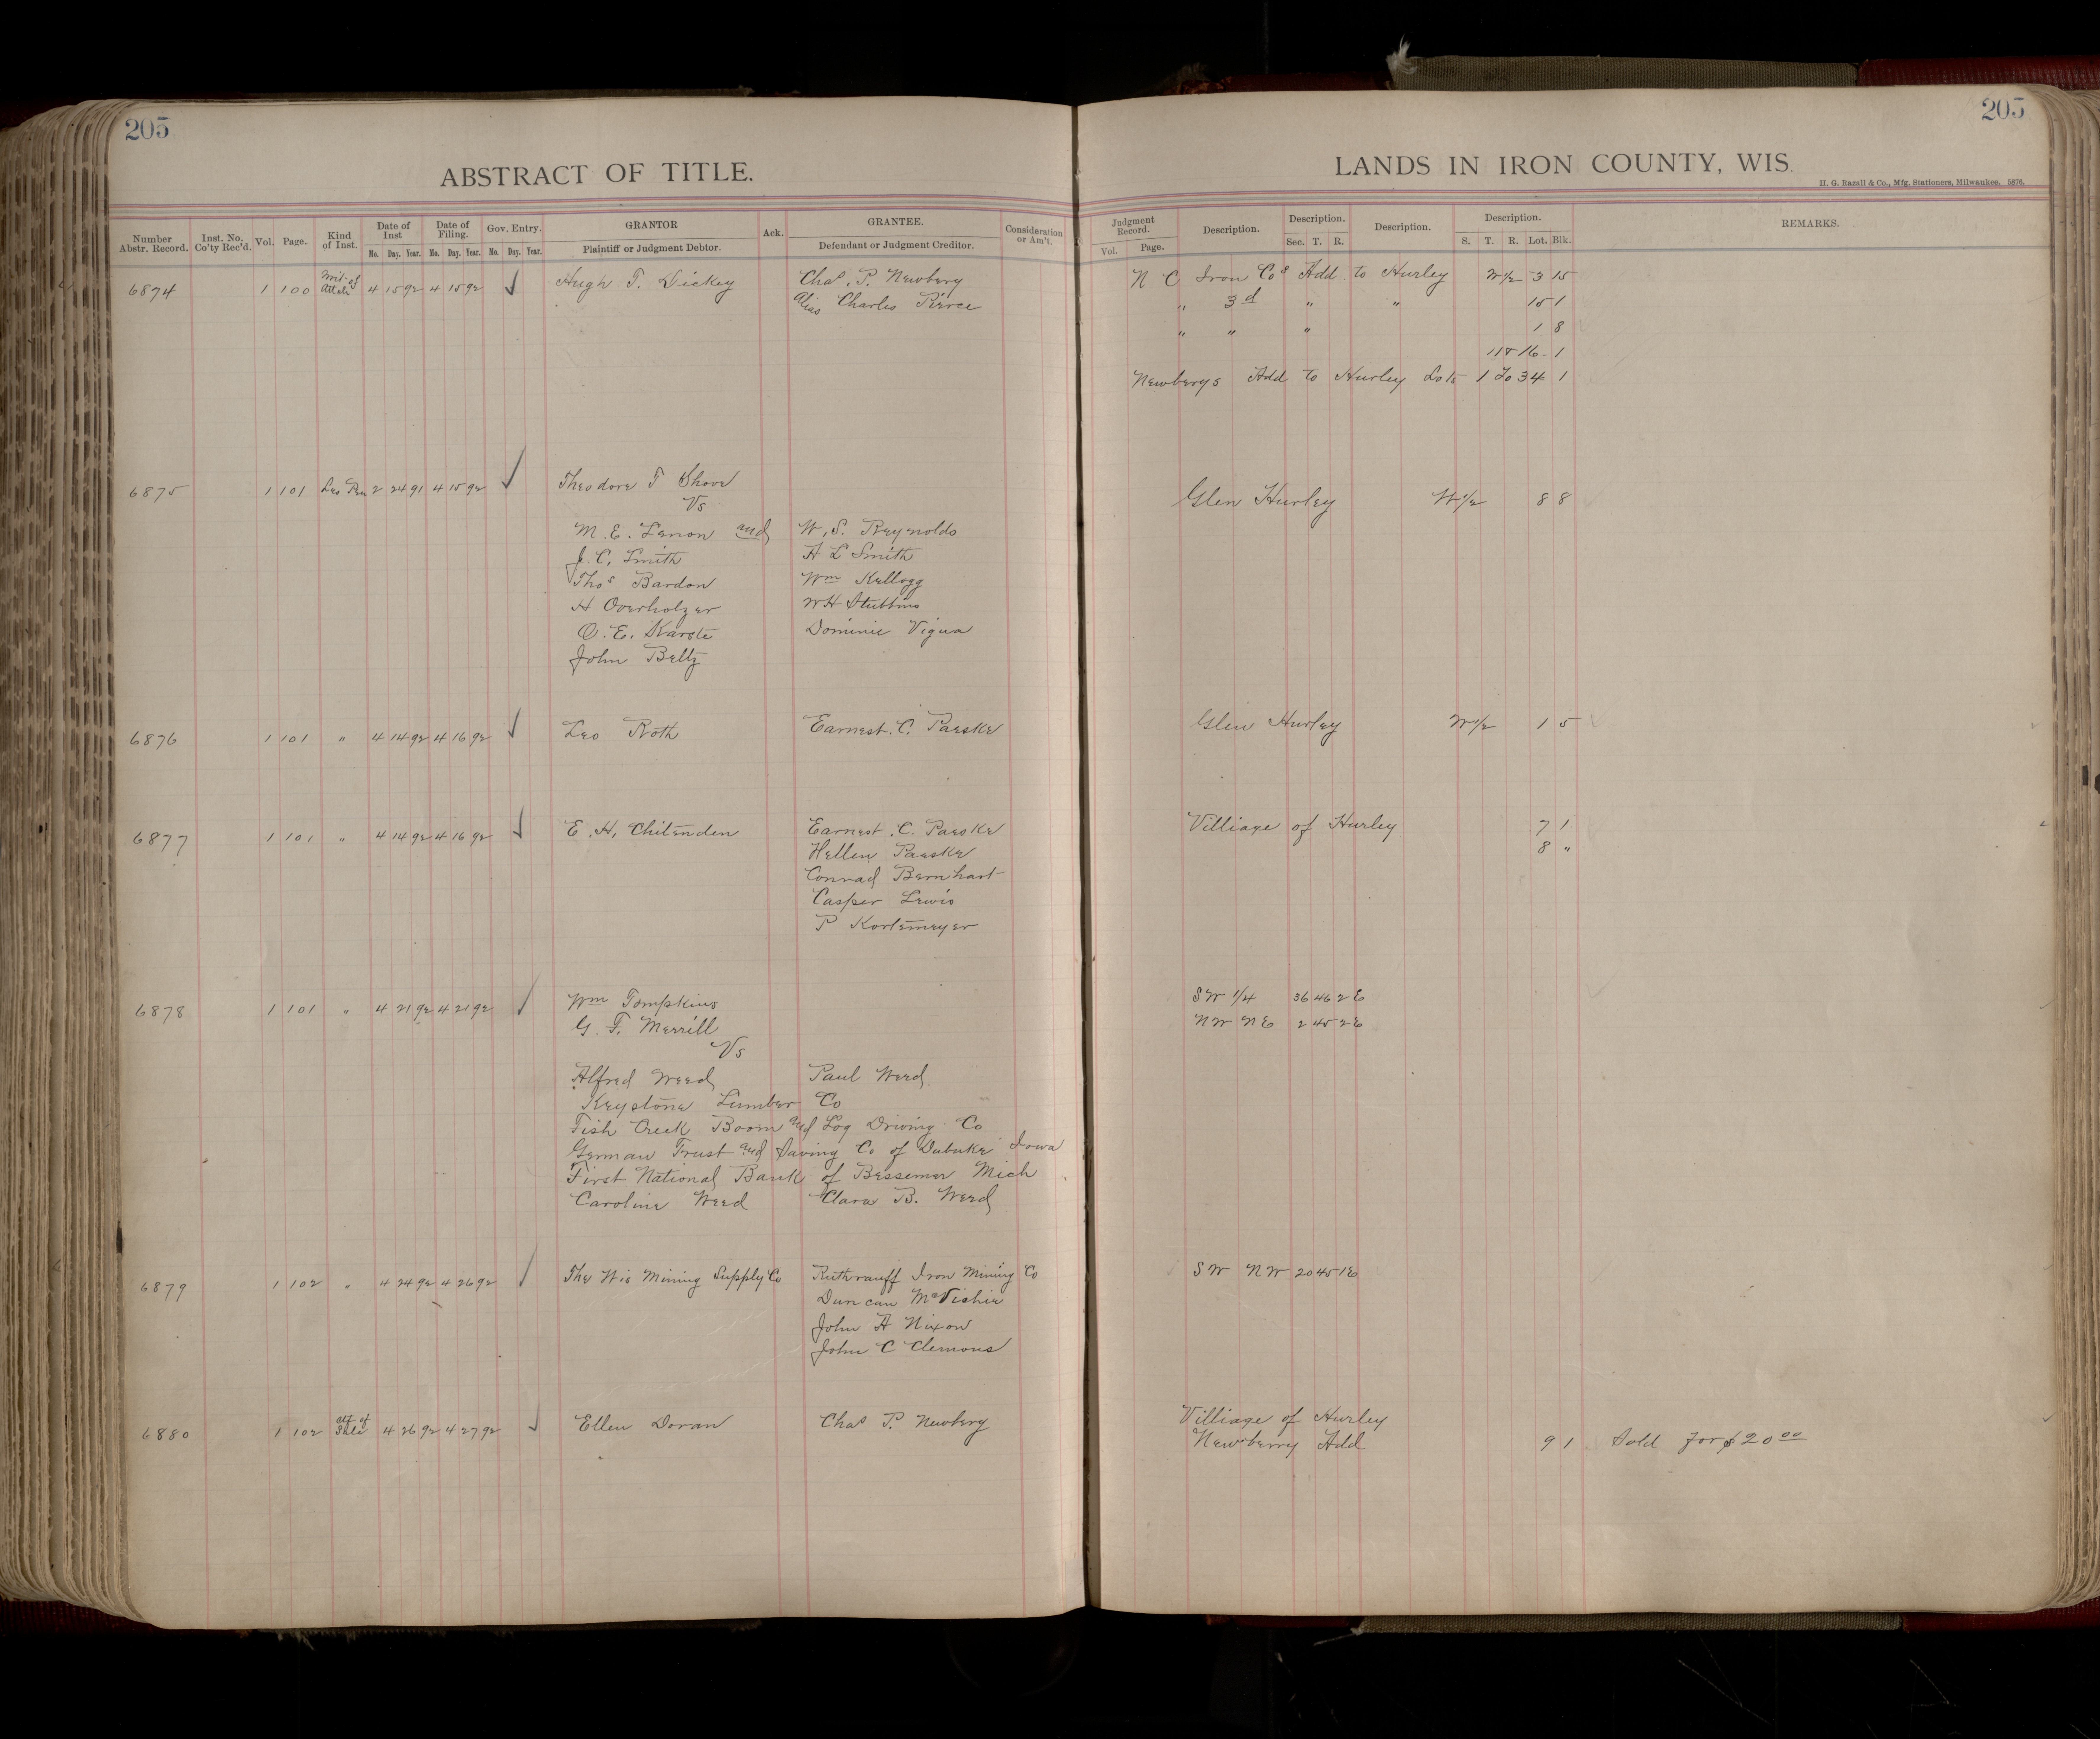 205
205
ABSTRACT OF TITLE.
LANDS IN IRON COUNTY, WIS.
H. G. Razall & Co., Mfg. Stationers, Milwaukee. 5876.
Number Abstr. Record. Inst. No. Co'ty Rec'd. Vol. Page. Kind of Inst. Date of Inst Mo. Day. Year. Date of Filing. Mo. Day. Year. Gov. Entry. Mo. Day. Year. GRANTOR Plaintiff or Judgment Debtor. Ack. GRANTEE. Defendant or Judgment Creditor. Consideration or Am't. Judgment Record. Vol. Page. Description. Description. Sec. T. R. Description. Description. S. T. R. Lot. Blk. REMARKS.
6874 1 100 Writ of Attch 4 15 92 4 15 92 ✓ Hugh T. Dickey Chas. P. Newbery N C Iron Cos Add. to Hurley W 1/2 3 15
Alias Charles Pierce " 3d " " 15 1
" " " 1 8
16 1
Newberys Add to Hurley Lots 1 To 34 1
6875 1 101 Les Pen 2 24 91 4 15 92 ✓ Theodore T Shove Glen Hurley W 1/2 8 8
Vs
M. E. Lenon and W. S. Reynolds
J. C. Smith A L Smith
Thos Bardon Wm Kellogg
H Overholzer W H Stubbins
O. E. Karste Dominic Vigua
John Beltz
6876 1 101 " 4 14 92 4 16 92 ✓ Leo Roth Earnest. C. Paeske Glen Hurley W 1/2 1 5
6877 1 101 " 4 14 92 4 16 92 ✓ E. H. Chitenden Earnest. C. Paeske Villiage of Hurley 7 1
Hellen Paeske 8 "
Conrad Bernhart
Casper Lewis
P Kortemeyer
6878 1 101 " 4 21 92 4 21 92 ✓ Wm Tompkins SW 1/4 36 46 2 E
G. F. Merrill NW NE 2 45 2 E
Vs
Alfred Weed Paul Weed.
Keystone Lumber Co
Fish Creek Boom and Log Driving Co
German Trust and Saving Co of Dubuke Iowa
First National Bank of Bessemer Mich
Caroline Weed Clara B. Weed
6879 1 102 " 4 24 92 4 26 92 ✓ The Wis Mining Supply Co Ruthrauff Iron Mining Co SW NW 20 45 1 E
Duncan McVichie
John A Nixon
John C Clemons
6880 1 102 Ctf of Sale 4 26 92 4 27 92 ✓ Ellen Doran Chas P. Newbery Villiage of Hurley
Newberry Add 9 1 Sold for $20 00